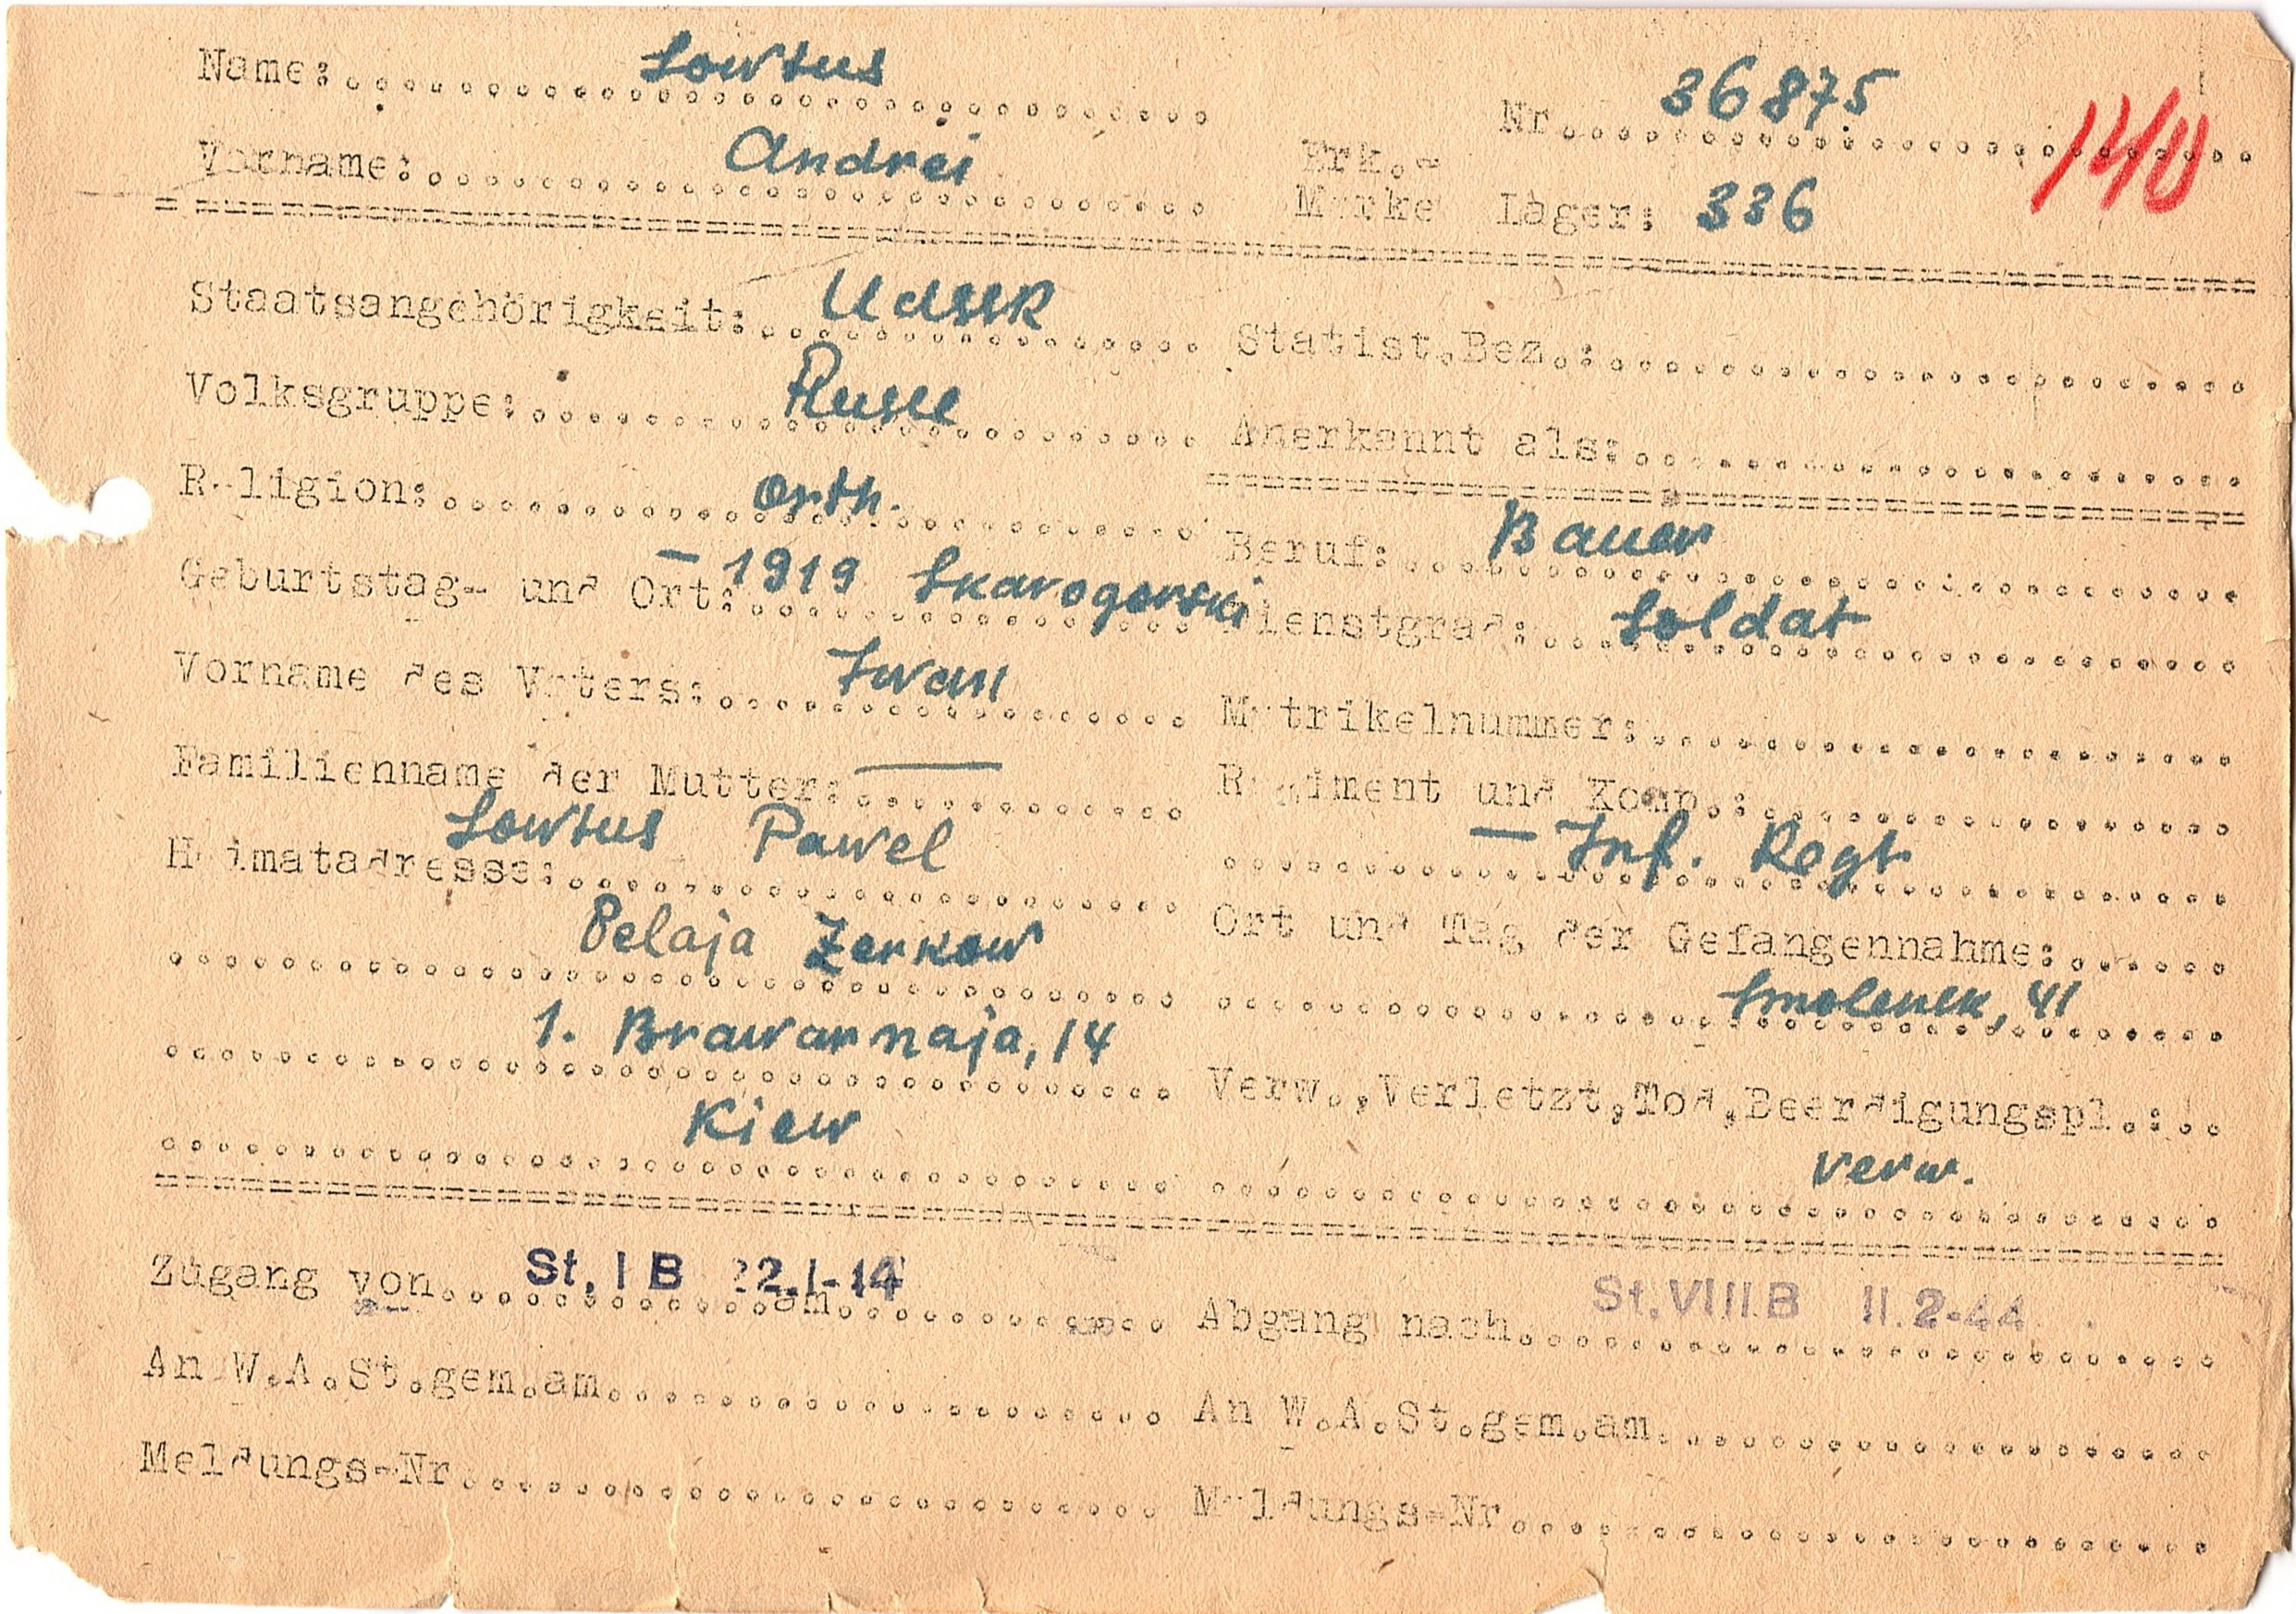 Name: Lowtus
Nr. 36875
Vorname: Andrei
Erk.-
Marke Lager: 336
Staatsangehörigkeit: UdSSR
Statist.Bez.:
Volksgruppe: Russe
Anerkannt als:
Religion: orth.
Beruf: Bauer
Geburtstag- und Ort: - 1919 Skarogorski
Dienstgrad: Soldat
Vorname des Vaters: Iwan
Matrikelnummer:
Familienname der Mutter: —
Regiment und Komp.:
— Inf. Regt
Heimatadresse: Lowtus Pawel
Belaja Zerkow
1. Brawarnaja, 14
Kiew
Ort und Tag der Gefangennahme:
Smolensk, 41
Verw., Verletzt, Tod, Beerdigungspl.:
verw.
Zugang von St. I B am 22.1-14
Abgang nach St. VIII B 11.2-44
An W.A.St.gem.am
An W.A.St.gem.am
Meldungs-Nr
Meldungs-Nr